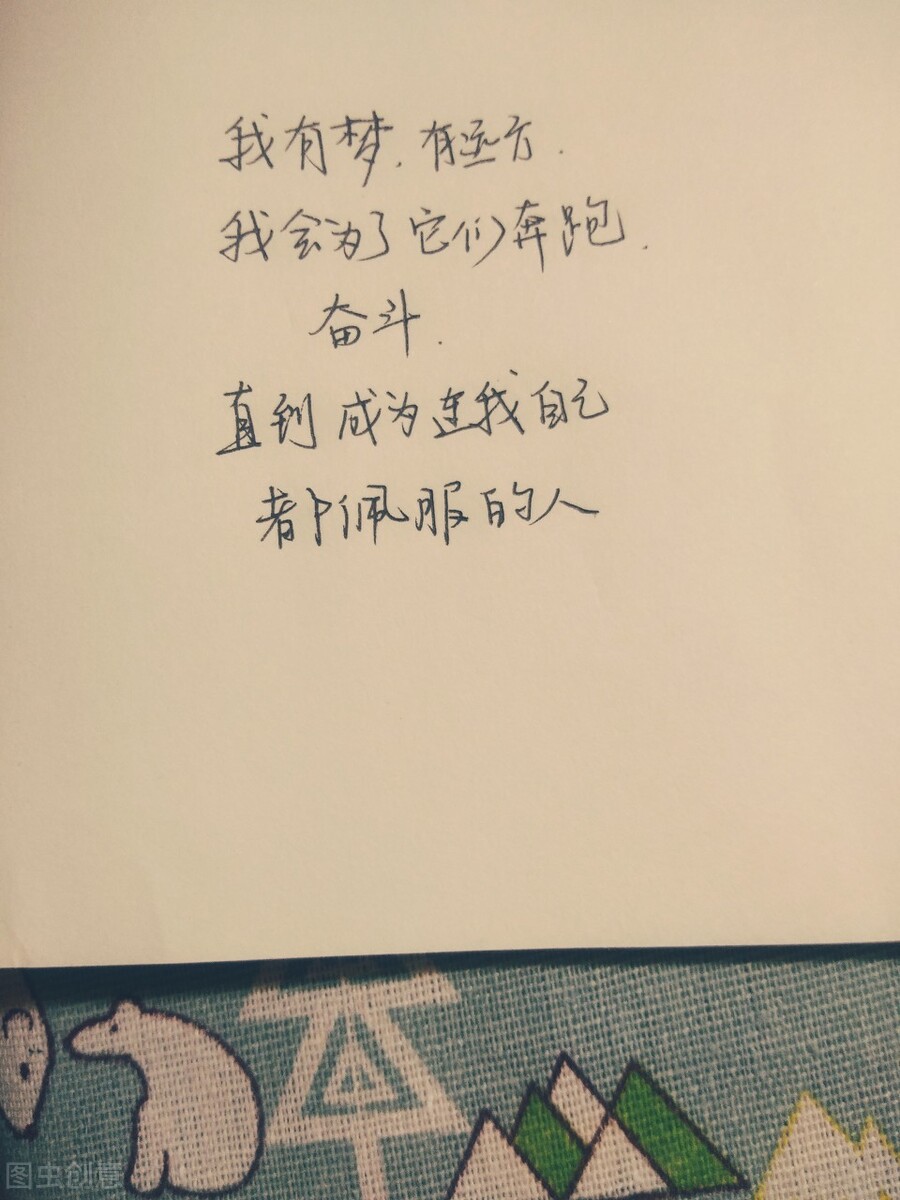 我有梦.有远方.
我会为了它们奔跑.
奋斗.
直到成为连我自己
都佩服的人
图虫创意